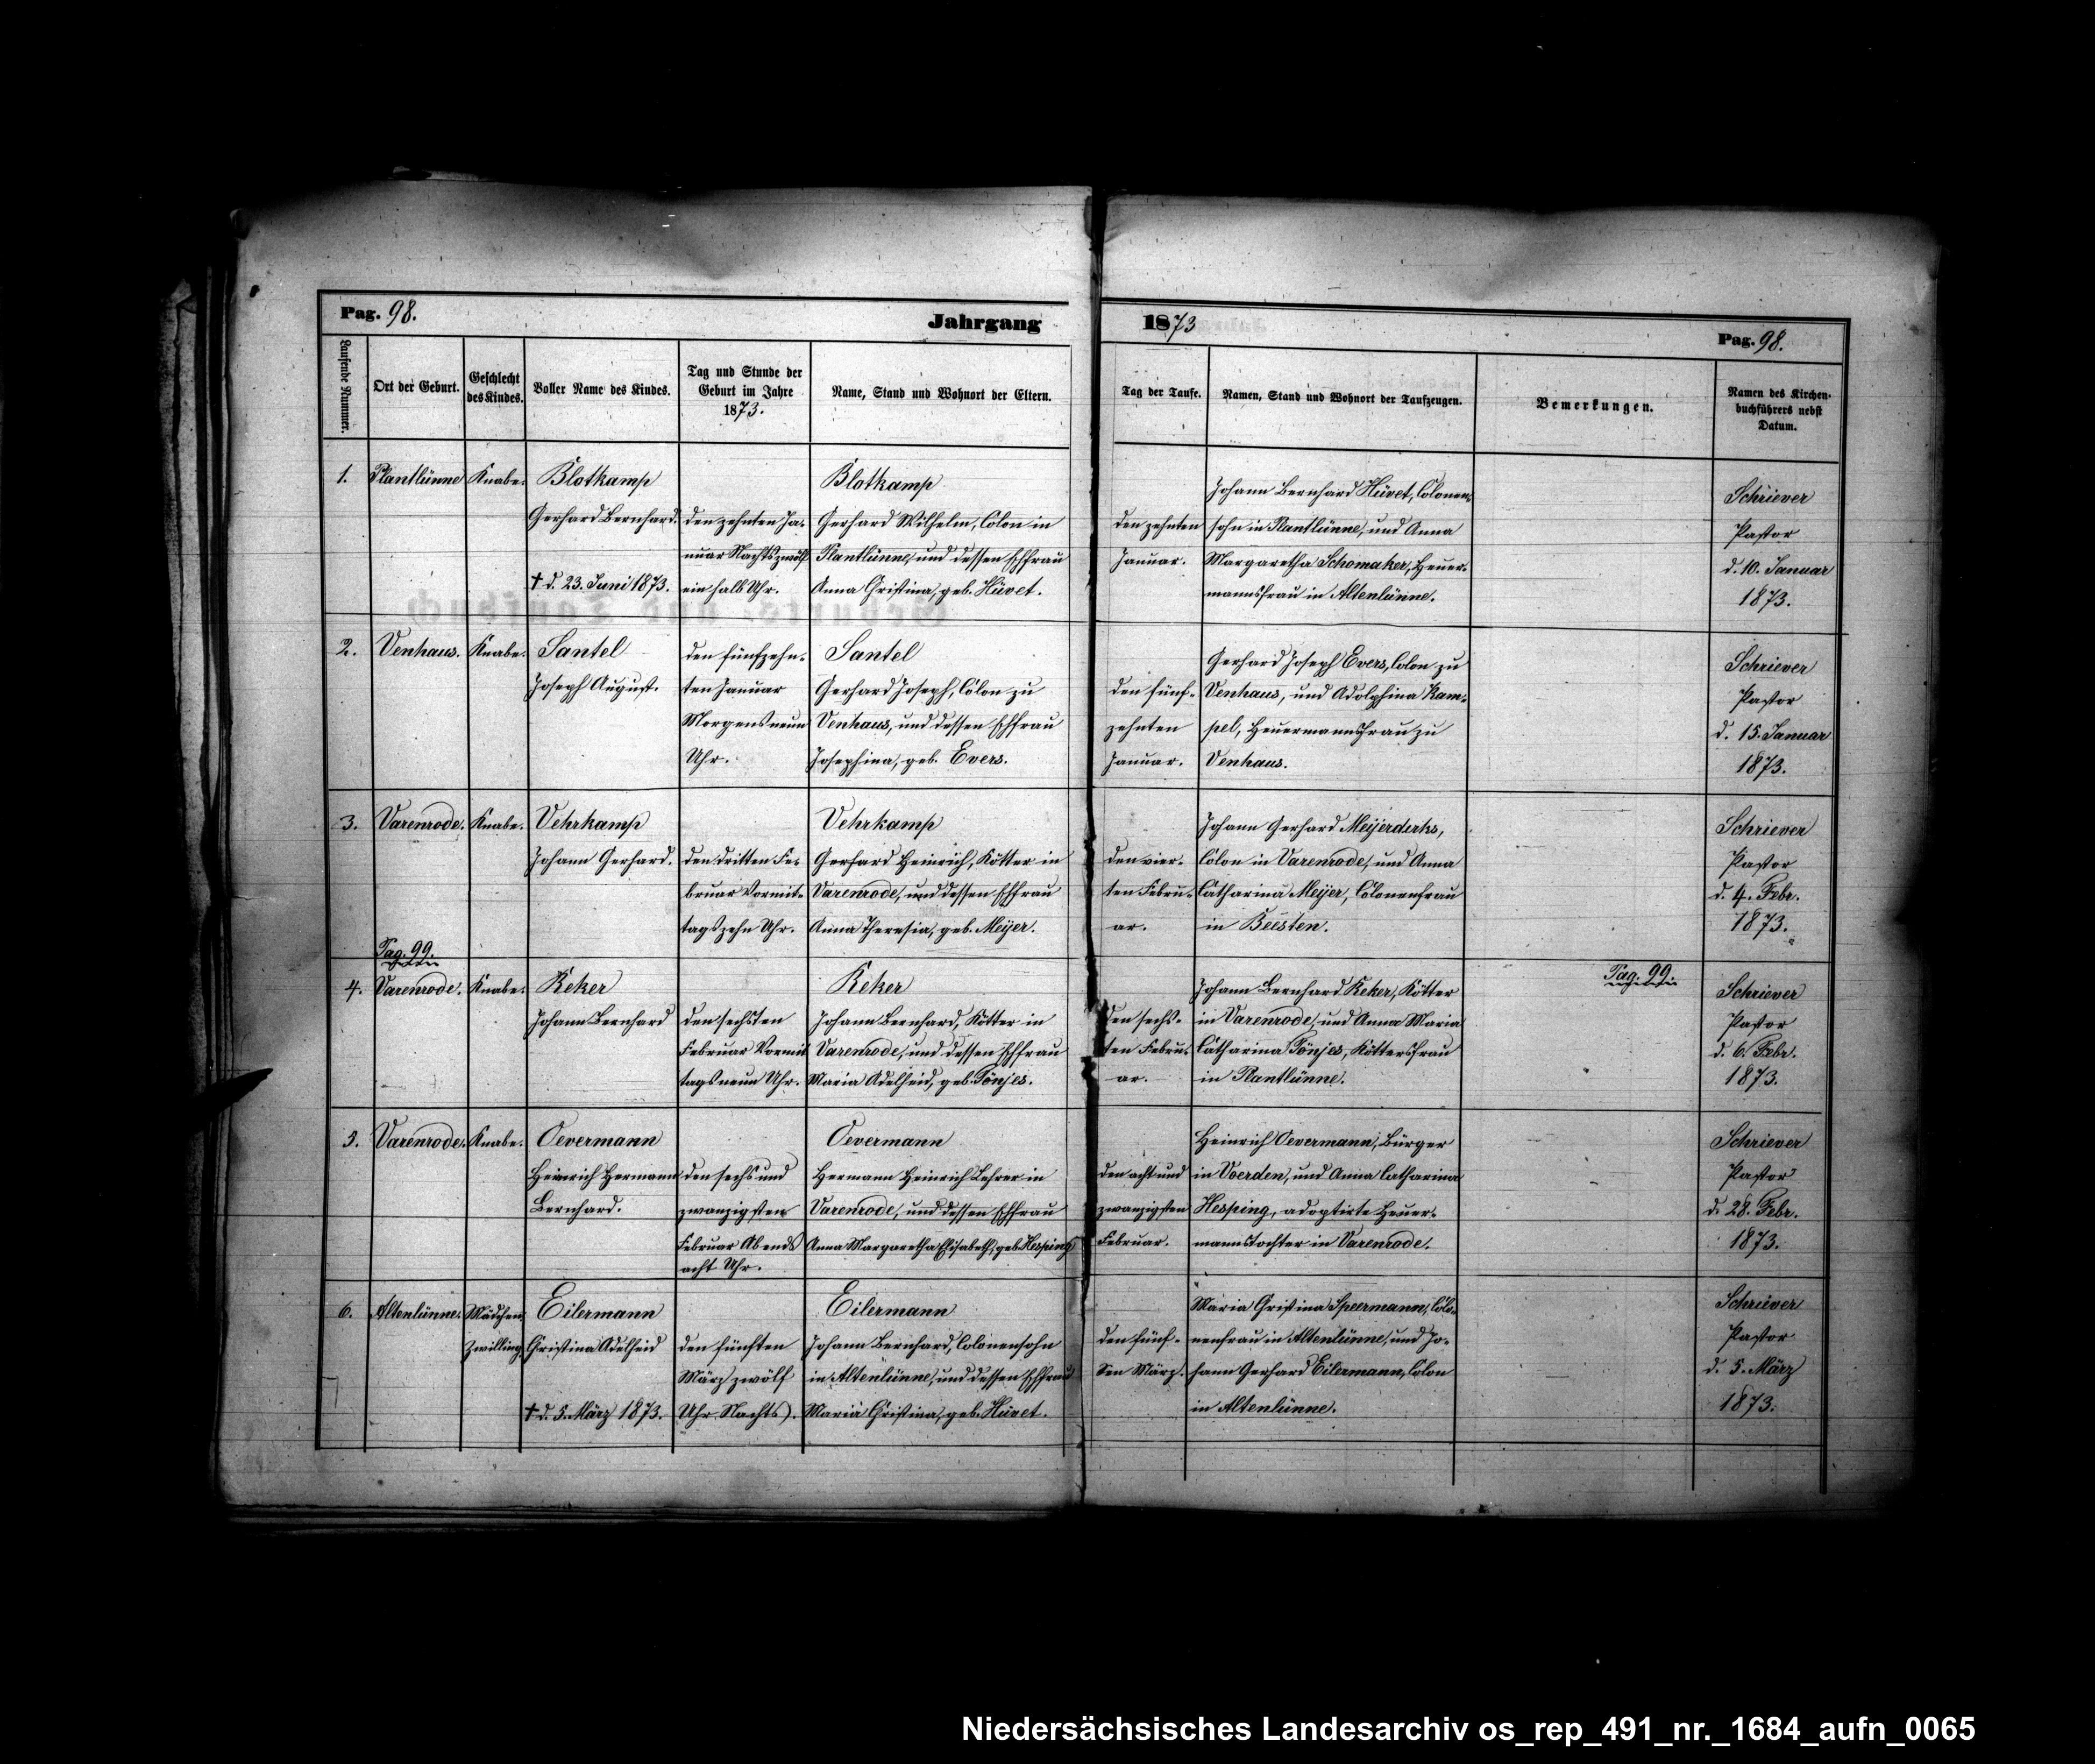 Pag. 98.
Jahrgang
1873
Pag. 98.
Laufende Nummer.
Ort der Geburt.
Geschlecht
des Kindes.
Voller Name des Kindes.
Tag und Stunde der
Geburt im Jahre
1873.
Name, Stand und Wohnort der Eltern.
Tag der Taufe.
Namen, Stand und Wohnort der Taufzeugen.
Bemerkungen.
Namen des Kirchen-
buchführers nebst
Datum.
1.
Plantlünne
Knabe.
Blotkamp
Gerhard Bernhard.
† d. 23. Juni 1873.
den zehnten Ja-
nuar Nachts zwölf
ein halb Uhr.
Blotkamp
Gerhard Wilhelm, Colon in
Plantlünne, und dessen Ehfrau
Anna Christina, geb. Hüvet.
den zehnten
Januar.
Johann Bernhard Hüvet, Colonen-
sohn in Plantlünne, und Anna
Margaretha Schomaker, Heuer-
mannsfrau in Altenlünne.
Schriever
Pastor
d. 10. Januar
1873.
2.
Venhaus.
Knabe.
Santel
Joseph August.
den fünfzehn-
ten Januar
Morgens neun
Uhr.
Santel
Gerhard Joseph, Colon zu
Venhaus, und dessen Ehfrau
Josephina, geb. Evers.
den fünf-
zehnten
Januar.
Gerhard Joseph Evers, Colon zu
Venhaus, und Adolphina Kam-
pel, Heuermannsfrau zu
Venhaus.
Schriever
Pastor
d. 15. Januar
1873.
3.
Varenrode.
Knabe.
Vehrkamp
Johann Gerhard.
den dritten Fe-
bruar Vormit-
tags zehn Uhr.
Vehrkamp
Gerhard Heinrich, Kötter in
Varenrode, und dessen Ehfrau
Anna Theresia, geb. Meijer.
den vier-
ten Febru-
ar.
Johann Gerhard Meijerderks,
Colon in Varenrode, und Anna
Catharina Meijer, Colonenfrau
in Beesten.
Schriever
Pastor
d. 4. Febr.
1873.
Pag. 99.
Pag. 99.
4.
Varenrode.
Knabe.
Reker
Johann Bernhard
den sechsten
Februar Vormit
tags neun Uhr.
Reker
Johann Bernhard, Kötter in
Varenrode, und dessen Ehfrau
Maria Adelheid, geb. Tönjes.
den sechs-
ten Febru-
ar.
Johann Bernhard Reker, Kötter
in Varenrode, und Anna Maria
Catharina Tönjes, Köttersfrau
in Plantlünne.
Schriever
Pastor
d. 6. Febr.
1873.
5.
Varenrode.
Knabe.
Oevermann
Heinrich Hermann
Bernhard.
den sechs und
zwanzigsten
Februar Abends
acht Uhr.
Oevermann
Hermann Heinrich Lehrer in
Varenrode, und dessen Ehfrau
Anna Margaretha Elisabeth, geb. Hesping
den acht und
zwanzigsten
Februar.
Heinrich Oevermann, Bürger
in Voerden, und Anna Catharina
Hesping, adoptirte Heuer-
mannstochter in Varenrode.
Schriever
Pastor
d. 28. Febr.
1873.
6.
Altenlünne.
Mädchen,
Zwilling.
Eilermann
Christina Adelheid
† d. 5. März 1873.
den fünften
März zwölf
Uhr Nachts).
Eilermann
Johann Bernhard, Colonensohn
in Altenlünne, und dessen Ehfrau
Maria Christina, geb. Hüvet.
den fünf-
ten März.
Maria Christina Speermann, Colo-
nenfrau in Altenlünne, und Jo-
hann Gerhard Eilermann, Colon
in Altenlünne.
Schriever
Pastor
d. 5. März
1873.
Niedersächsisches Landesarchiv os_rep_491_nr._1684_aufn_0065